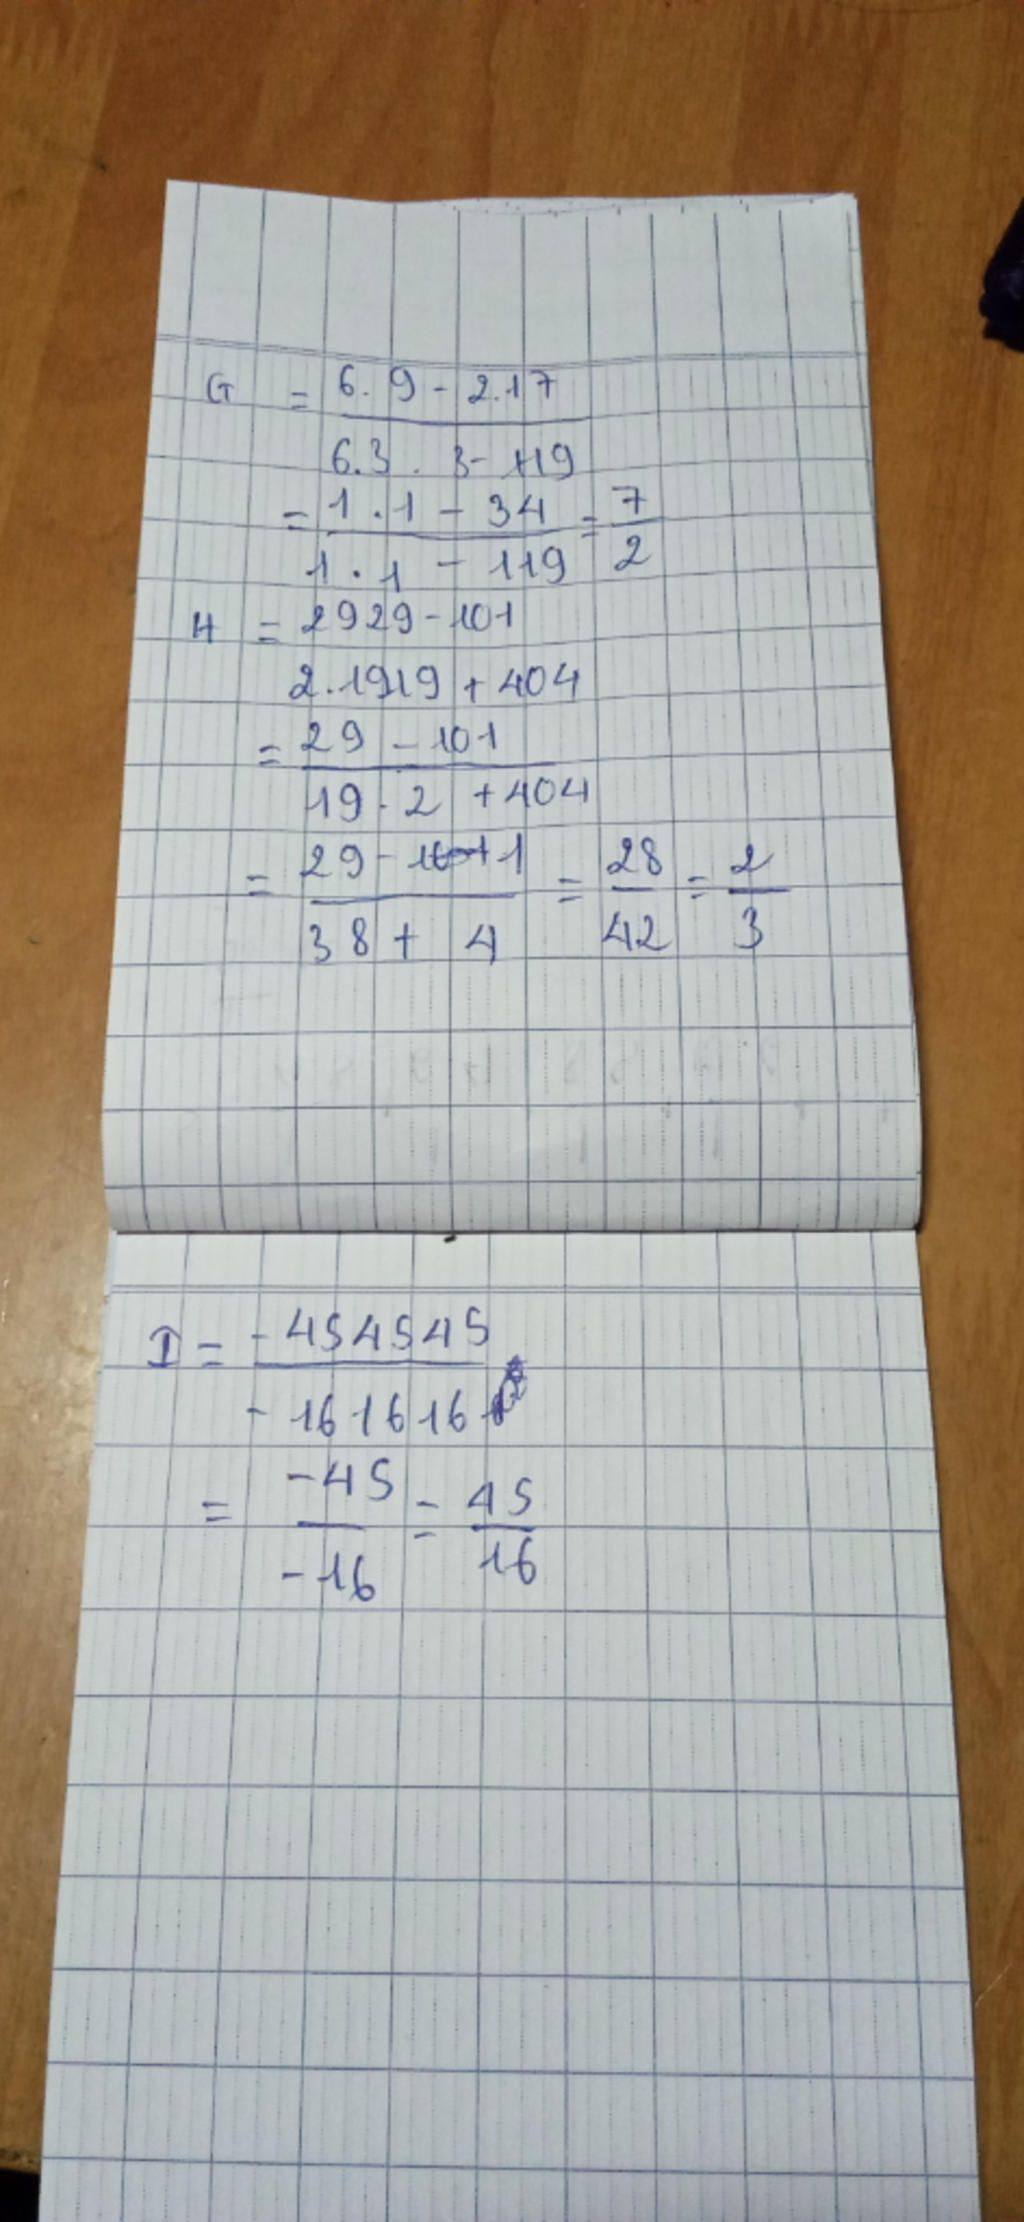 G = 6. 9 - 2.17
6.3 . 3 - 119
= 1 . 1 - 34 = 7
1 . 1 - 119 2
H = 2929 - 101
2.1919 + 404
= 29 - 101
19 . 2 + 404
= 29 - 1 = 28 = 2
38 + 4 42 3
I = - 454545
- 161616
= -45 = 45
-16 16